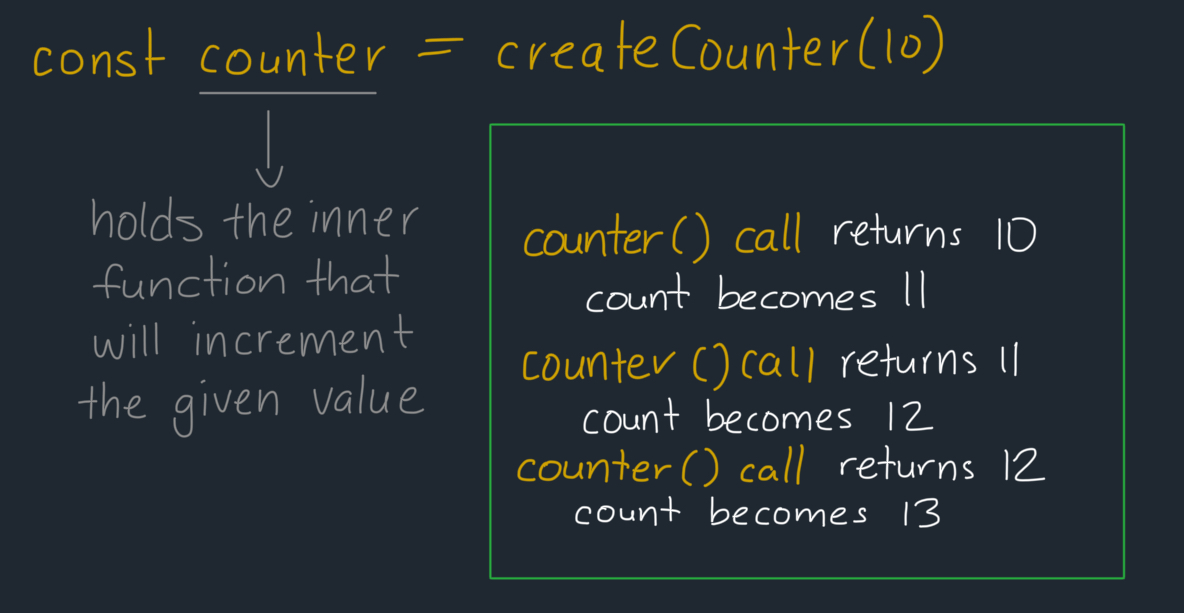 const counter = createCounter(10)
holds the inner
function that
will increment
the given value
counter() call returns 10
count becomes 11
counter () call returns 11
count becomes 12
counter() call returns 12
count becomes 13